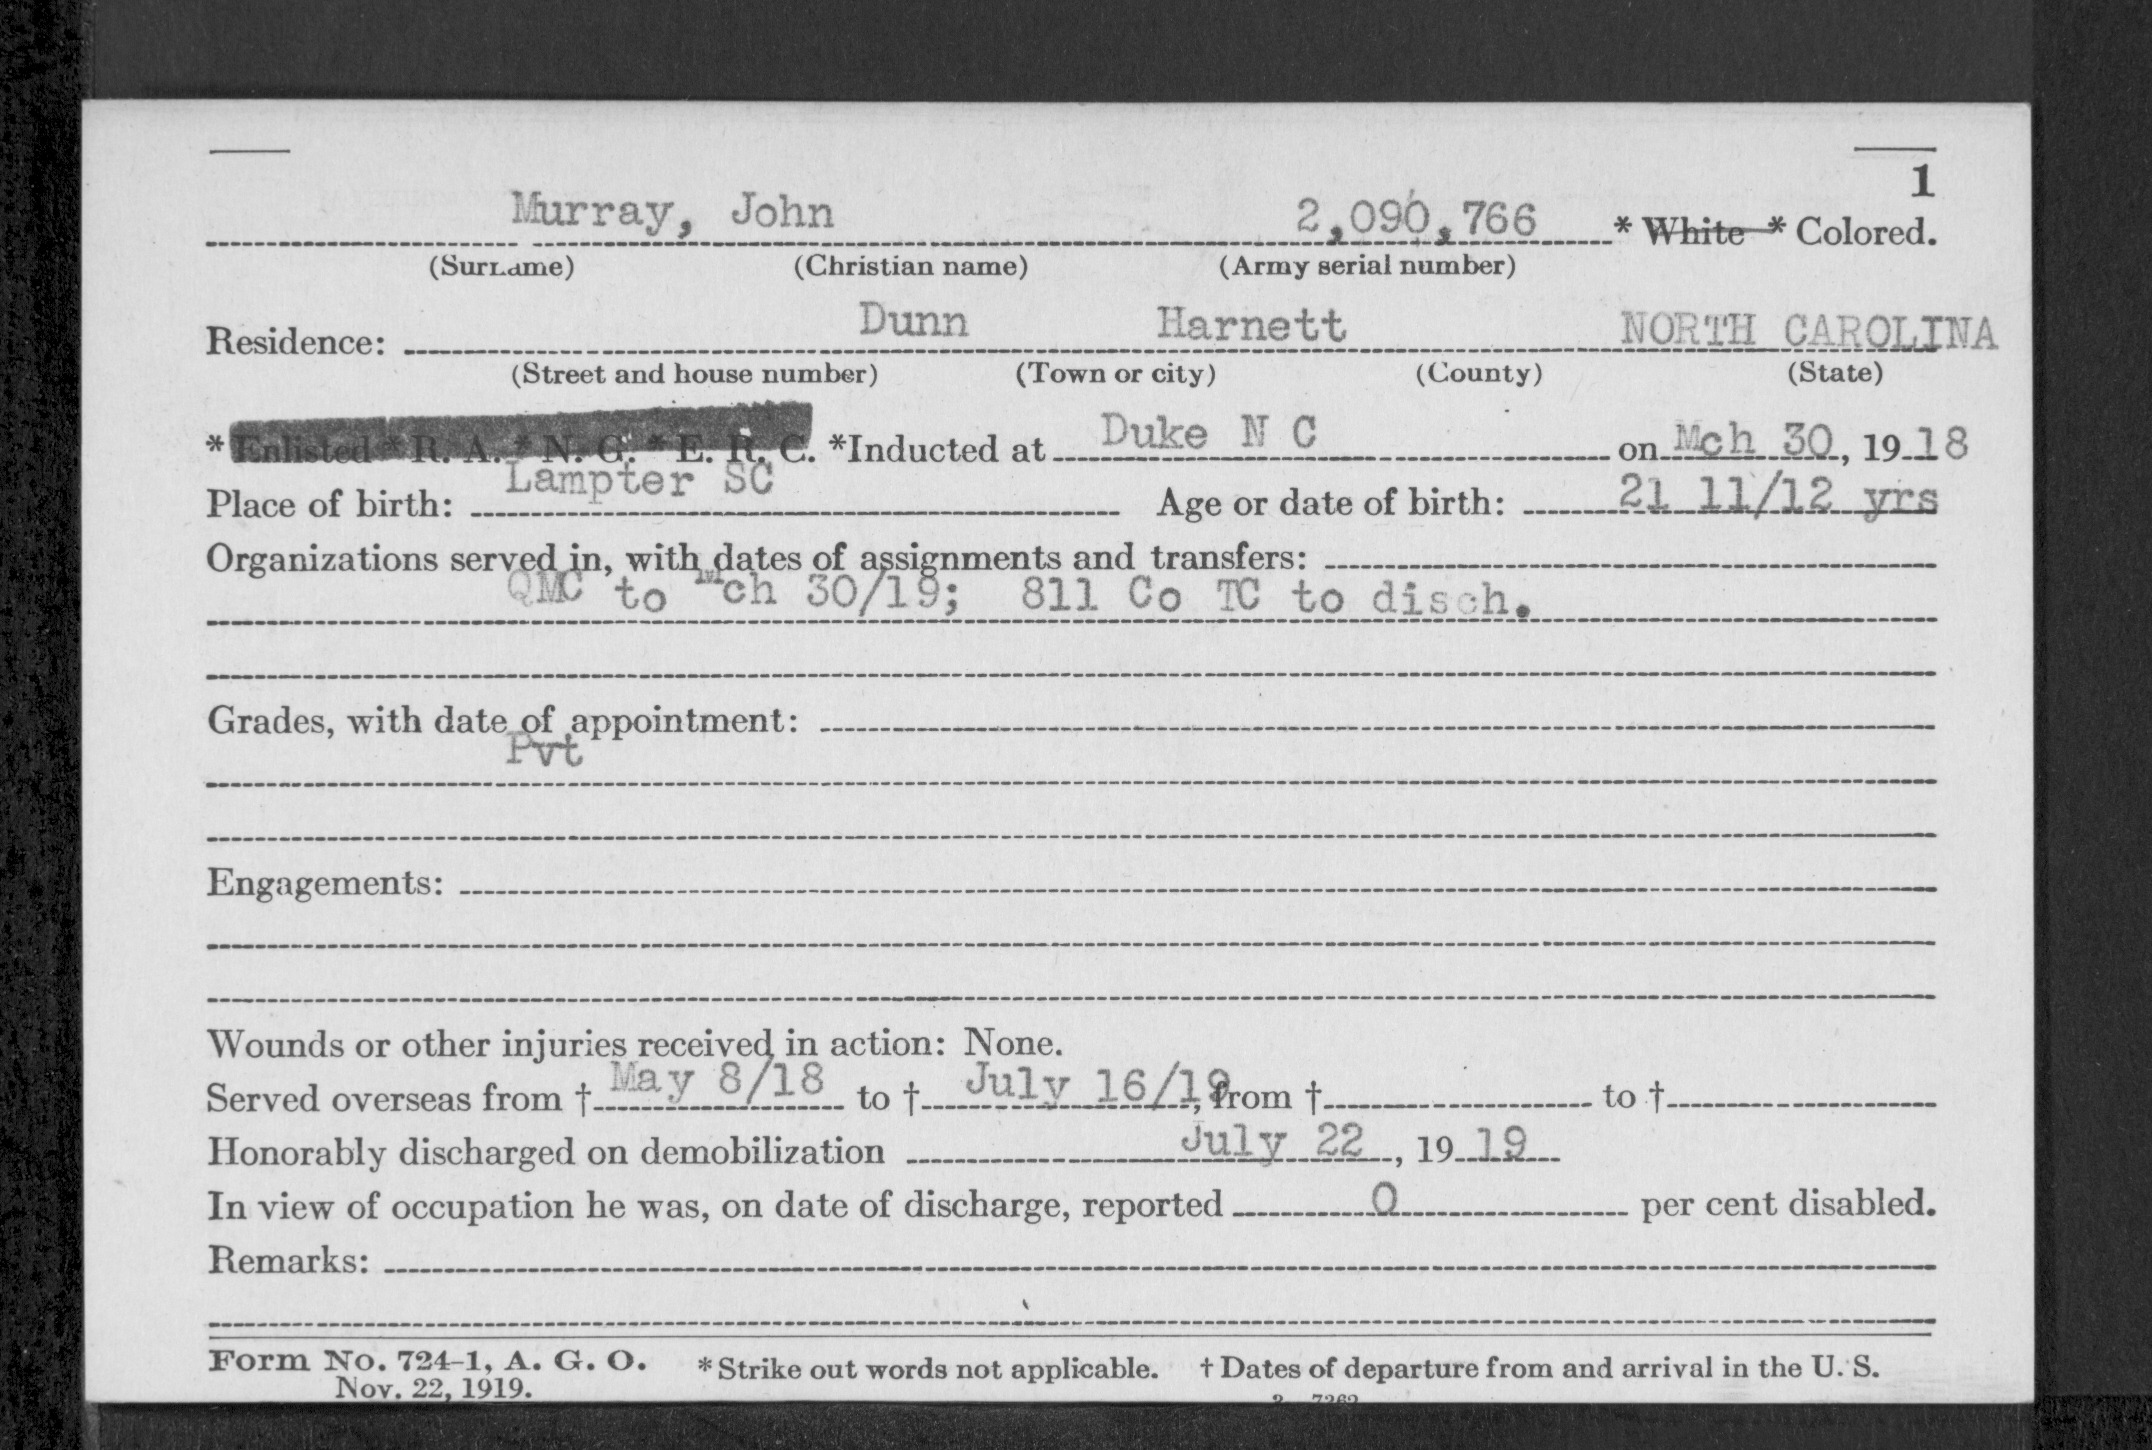 1
Murray, John 2,090,766 * White * Colored.
(Surname) (Christian name) (Army serial number)
Residence: Dunn Harnett NORTH CAROLINA
(Street and house number) (Town or city) (County) (State)
* Enlisted * R. A. * N. G. * E. R. C. *Inducted at Duke N C on Mch 30, 19 18
Place of birth: Lampter SC Age or date of birth: 21 11/12 yrs
Organizations served in, with dates of assignments and transfers:
QMC to Mch 30/19; 811 Co TC to disch.
Grades, with date of appointment:
Pvt
Engagements:
Wounds or other injuries received in action: None.
Served overseas from † May 8/18 to † July 16/19, from † to †
Honorably discharged on demobilization July 22, 19 19
In view of occupation he was, on date of discharge, reported 0 per cent disabled.
Remarks:
Form No. 724-1, A. G. O. * Strike out words not applicable. † Dates of departure from and arrival in the U. S.
Nov. 22, 1919.